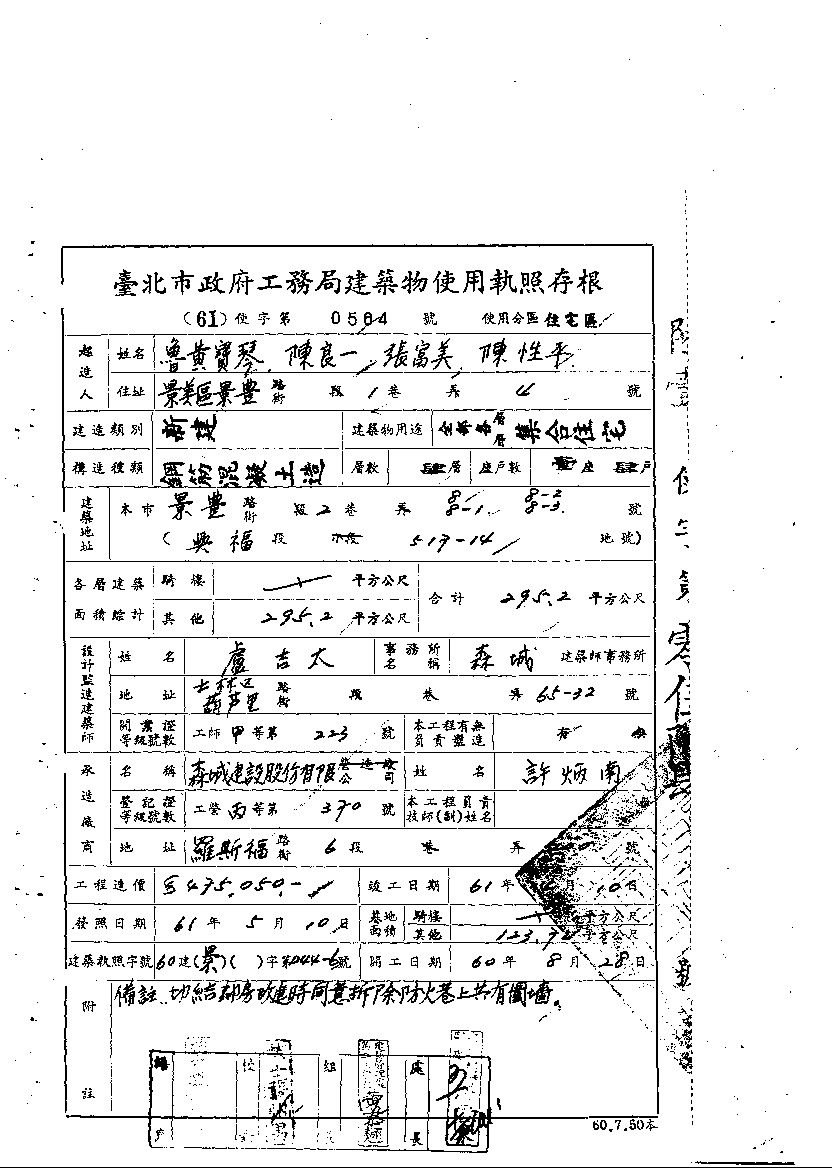 臺北市政府工務局建築物使用執照存根
(61) 使字第 0564 號 使用分區 住宅區
起造人 姓名 魯黃寶琴、陳良一、張富美、陳性平
住址 景美區景豊 路街 段 1 巷 弄 4 號
建造類別 新建 建築物用途 全部各層 集合住宅
構造種類 鋼筋混凝土造 層數 肆層 座戶數 壹座 肆戶
建築地址 本市 景豊 路街 段 2 巷 弄 8 8-1 8-2 8-3 號
( 興福 段 小段 517-14 地號)
各層建築面積賒計 騎樓 平方公尺 合計 295.2 平方公尺
其他 295.2 平方公尺
設計監造建築師 姓名 盧吉太 事務所名稱 森城 建築師事務所
地址 士林區葫芦里 路街 段 巷 弄 65-32 號
開業證等級號數 工師 甲 等第 223 號 本工程有無負責監造 有 無
承造廠商 名稱 森城建設股份有限 營造廠公司 姓名 許炳南
登記證等級號數 工營 丙 等第 370 號 本工程負責技師(副)姓名
地址 羅斯福 路街 6 段 巷 弄 號
工程造價 475,050.- 竣工日期 61 年 月 10 日
發照日期 61 年 5 月 10 日 基地面積 騎樓 平方公尺
其他 平方公尺
建築執照字號 60 建 (景) ( ) 字第 044-6 號 開工日期 60 年 8 月 28 日
附註 備註、切結鄰房改建時同意拆除防火巷上共有圍墻。
位 組 處長
60.7.50本